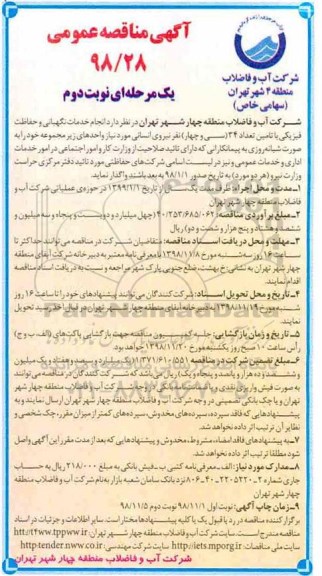 آگهی مناقصه عمومی
۹۸/۲۸
یک مرحله‌ای نوبت دوم
شرکت آب و فاضلاب
منطقه ۴ شهر تهران
(سهامی خاص)
شرکت آب و فاضلاب منطقه چهار شهر تهران در نظر دارد انجام خدمات نگهبانی و حفاظت
فیزیکی با تامین تعداد ۳۴ (سی و چهار) نفر نیروی انسانی مورد نیاز واحدهای زیر مجموعه خود را به
صورت شبانه‌روزی به پیمانکارانی که دارای تائید صلاحیت از وزارت کار و امور اجتماعی در امور خدمات
اداری و خدمات عمومی و نیز در لیست اسامی شرکت‌های حفاظتی مورد تائید دفتر مرکزی حراست
وزارت نیرو (هر دو مورد) به تاریخ صدور ۹۸/۱/۱ به بعد باشند واگذار نماید.
۱-مدت و محل اجراء: ظرف مدت یک سال از تاریخ ۱۳۹۹/۲/۱ در حوزه‌ی عملیاتی شرکت آب و
فاضلاب منطقه چهار شهر تهران
۲-مبلغ برآوردی مناقصه: (چهل میلیارد و دویست و پنجاه و سه میلیون و
ششصد و هشتاد و پنج هزار و شصت و دو) ریال
۳-مهلت و محل دریافت اسناد مناقصه: متقاضیان شرکت در مناقصه می توانند حداکثر تا
ساعت ۱۶ روز سه‌شنبه مورخ ۱۳۹۸/۱۱/۸ با معرفی نامه معتبر به دبیرخانه شرکت آبفای منطقه
چهار شهر تهران به نشانی: مراجعه و نسبت به دریافت اسناد مناقصه
اقدام نمایند.
۴-تاریخ و محل تحویل اسناد: شرکت کنندگان می توانند پیشنهادهای خود را تا ساعت ۱۶ روز
شنبه مورخ ۱۳۹۸/۱۱/۱۹ به دبیرخانه آبفای منطقه چهار شهر تهران و رسید تحویل
نمایند.
۵-تاریخ و زمان بازگشایی: جلسه کمیسیون مناقصه جهت بازگشایی پاکت‌های (الف، ب و ج)
راس ساعت ۱۰ صبح روز یکشنبه مورخ ۱۳۹۸/۱۱/۲۰ خواهد بود.
۶-مبلغ تضمین شرکت در مناقصه:
به صورت فیش واریز نقدی و یا شرکت آب و فاضلاب منطقه چهار شهر
تهران و یا چک بانکی تضمینی در وجه شرکت آب و فاضلاب منطقه چهار شهر تهران ارسال نمایند و به
پیشنهادهایی که فاقد سپرده، سپرده‌های مخدوش، سپرده‌های کمتر از میزان مقرر، چک شخصی و
نظایر آن ترتیب اثر داده نخواهد شد.
۷-به پیشنهادهای فاقد امضاء، مشروط، مخدوش و پیشنهادهایی که بعد از مدت مقرر این آگهی واصل
شود مطلقا ترتیب اثر داده نخواهد شد.
۸-مدارک مورد نیاز: الف-معرفی‌نامه کتبی ب-فیش بانکی به مبلغ ۲۱۸/۰۰۰ ریال به حساب
جاری بانک سامان شعبه بازار به نام شرکت آب و فاضلاب منطقه
چهار شهر تهران
۹-زمان چاپ آگهی: نوبت اول ۹۸/۱۱/۱ نوبت دوم ۹۸/۱۱/۵
برگزار کننده مناقصه در رد یا قبول یک یا کلیه پیشنهادها مختار است. سایر اطلاعات و جزئیات در اسناد
مناقصه مندرج است. سایت شرکت آب و فاضلاب منطقه چهار شهر تهران http://t4ww.tpww.ir
سایت ملی مناقصات: http://iets.mporg.ir سایت شرکت مهندسی: http:tender.nww.co.ir
شرکت آب و فاضلاب منطقه چهار شهر تهران